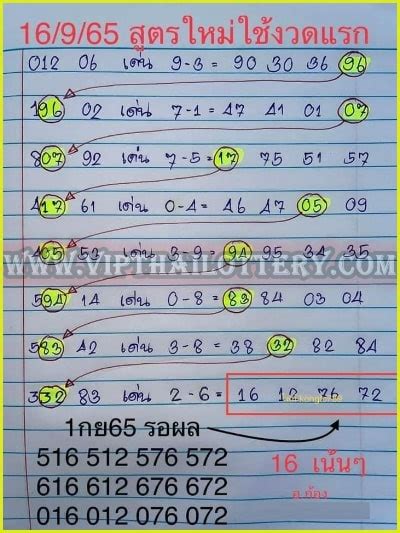 16/9/65 สูตรใหม่ใช้งวดแรก
012 06 เด่น 9-3 = 90 30 36 96
196 02 เด่น 7-1 = 47 41 01 07
807 92 เด่น 7-5 = 17 75 51 57
417 61 เด่น 0-4 = 46 47 05 09
405 53 เด่น 3-9 = 94 95 34 35
WWW.VIPTHAILOTTERY.COM
594 14 เด่น 0-8 = 83 84 03 04
583 42 เด่น 3-8 = 38 32 82 84
332 83 เด่น 2-6 = 16 12 76 72
1กย65 รอผล
516 512 576 572
616 612 676 672
016 012 076 072
16 เน้นๆ